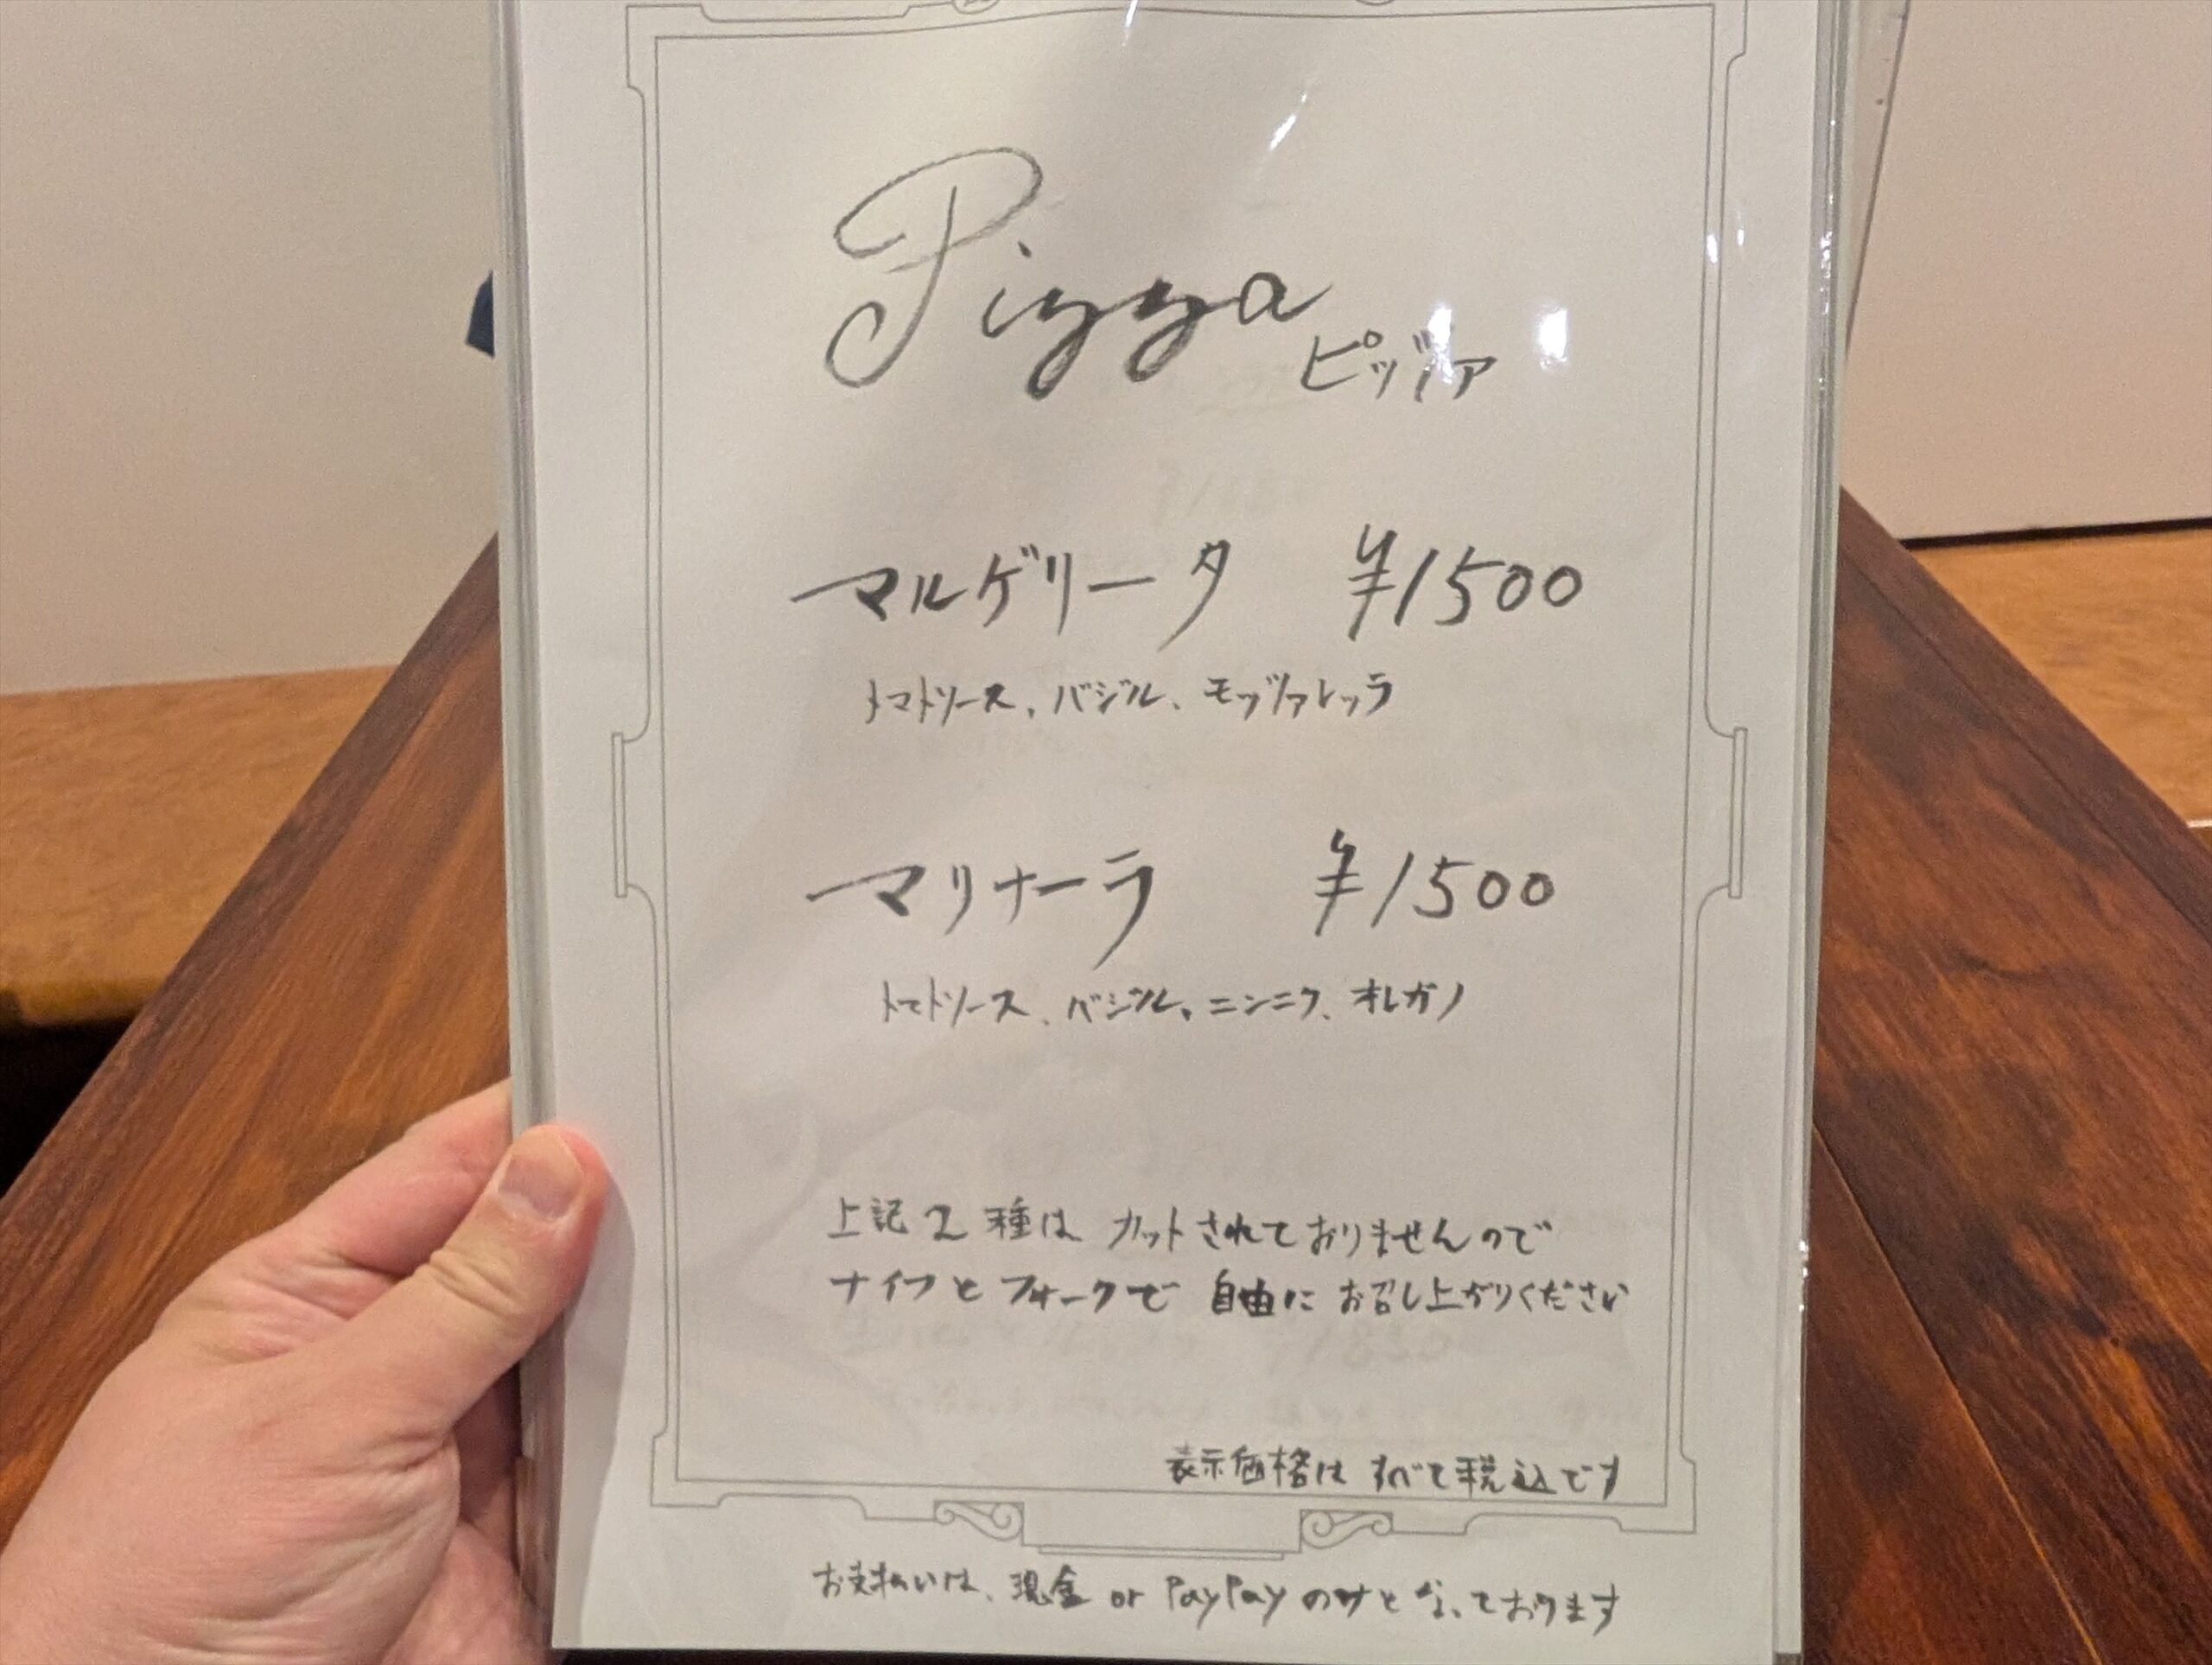 Pizza
ピッツァ
マルゲリータ ¥1500
トマトソース、バジル、モッツァレッラ
マリナーラ ¥1500
トマトソース、バジル、ニンニク、オレガノ
上記2種は カットされておりませんので
ナイフとフォークで 自由に お召し上がりください
表示価格は すべて税込です
お支払いは、現金 or PayPay のみとなっております